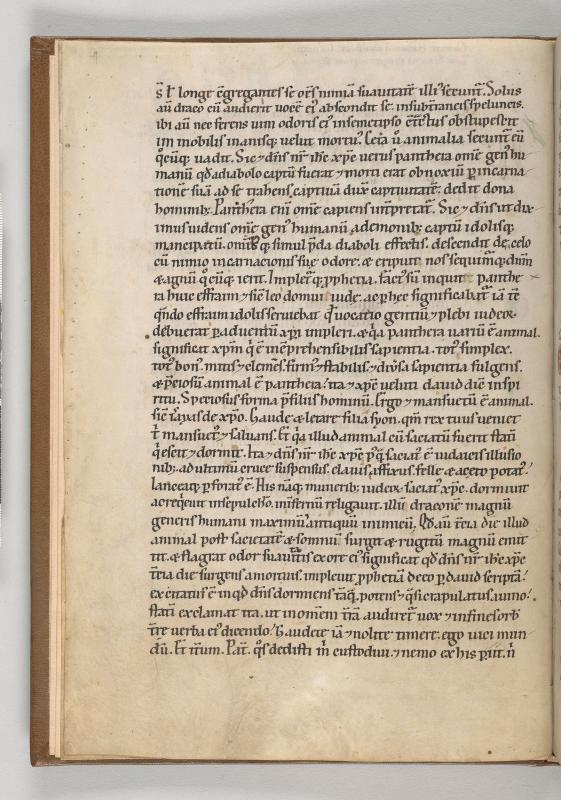 s̄ ł longe ēgregantes se oēs nimiā suauitatē illiꝰ secunt̄. Solus
aū draco cū audierit uocē eiꝰ abscondit se insubt̄raneis speluncis.
ibi aū nec ferens uim odoris eiꝰ insemetipso obstupescit
īm mobilis inanisq; uelut mortuꝰ. Cet̄a ū animalia secunt̄ eū
q̊cūq; uadit. Sic ⁊ dn̄s nr̄ ih̄c xp̄c uerus panthera om̄e genꝰ hu
manū qd̄ adiabolo captū fuerat ⁊ morti erat obnoxiū ꝑ incarna
tionē suā ad se trahens, captiuā dux̄ captiuitatē: dedit dona
hominib;. Panthera eni om̄e capiens int̄pretat̄. Sic ⁊ dn̄s ut dix
imus uidens om̄e genꝰ humanū ademonib; captū idolisq;
mancipatū. omib; q; simul p̄da diaboli effectis. descendit de celo
cū nimio incarnacionis sue odore. & eripuit nos sequimꝰq; dn̄m
& agnū q̊cūq; ierit. Implet̄q; ꝓphetia. factꝰ sū inquit panthe
ra huic effraim ⁊ sic̄ leo domui iude. ac ꝑ hec significabat̄ iā tē
qn̄do effraim idolis seruiebat. Qd̄ uocatio gentiū ⁊ plebi iudeoꝝ
debuerat ꝑ aduentū xp̄i impleri. & q̇a panthera uariū ē animal.
significat xp̄m q̇ ē inēprehensibilis sapientia. totꝰ simplex.
totꝰ bonꝰ. mitis ⁊ clemēs. firmꝰ ⁊ stabilis. ⁊ diūsa sapientia fulgens.
& p̄ciosū animal ē panthera. ita ⁊ xp̄c ueluti dauid diuē inspi
ritu. Speciosus forma p̄ filiis hominū. Ergo ⁊ mansuetū ē animal.
sic̄ isaias de xp̄o. Gaude & letare filia syon. qm̄ rex tuus ueniet
t̄ mansuetꝰ ⁊ saluans. Et q̇a illud animal cū saciatū fuerit statī
q̇escit ⁊ dormit. Ita ⁊ dn̄s nr̄ ih̄c xp̄c pꝰq̄ saciatꝰ ē iudaicis illusio
nib;. ad ultimū cruce suspensus. clauis affixus. felle & aceto potatꝰ.
lanceaq; ꝑforatꝰ ē. His nāq; munerib; iudeoꝝ saciatꝰ xp̄c. dormiuit
ac req̇euit insepulchro. infernū religauit. illū draconē magnū
generis humani maximū antiquū inimicū. Qd̄ aū t̄cia die illud
animal post sacietatē & somnū surgit & rugitū magnū emit
tit. & flagrat odor suauitis ex ore eiꝰ significat qd̄ dn̄s nr̄ ih̄c xp̄c
t̄cia die surgens amortuis. impleuit ꝓphetiā deeo ꝑ dauid scriptā.
excitatus ē inqd̄ dn̄s dormiens tāq̄. potens ⁊ q̄si crapulatus a uino.
statī exclamat ita. ut in om̄em t̄rā audiret̄ uox ⁊ in fines orb
t̄re uerba eiꝰ dicendo. Gaudete iā ⁊ nolite timere. ego uici mun
dū. Et it̄um. Pat̄. q̊s dedisti m̄ custodiui. ⁊ nemo ex his ꝑiit. n̄